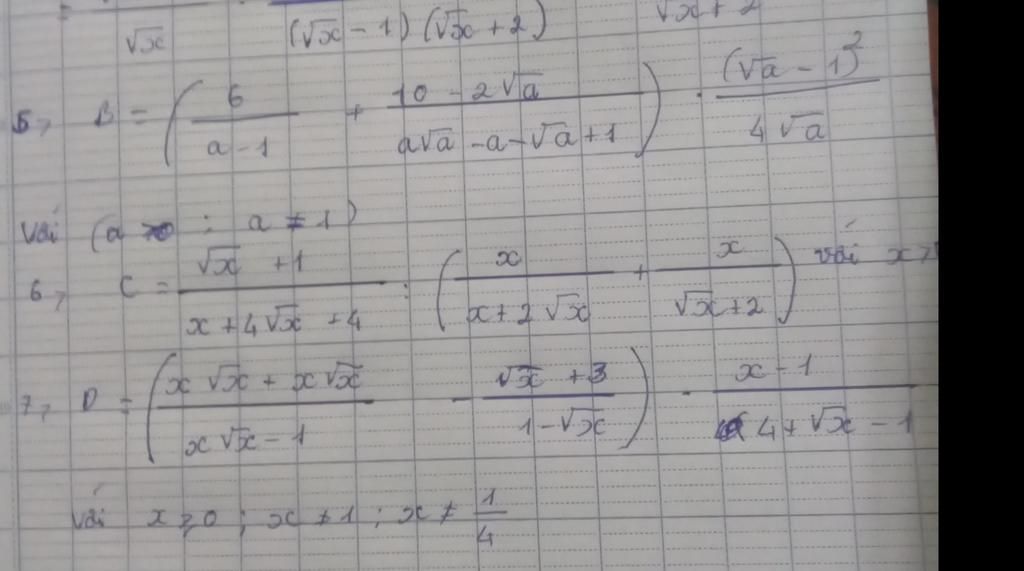 √x (√x - 1)(√x + 2) √x + 2
5, B = ( 6/(a - 1) + (10 - 2√a)/(a√a - a - √a + 1) ) · (√a - 1)²/(4√a)
Với (a > 0 ; a ≠ 1)
6, C = (√x + 1)/(x + 4√x + 4) : ( x/(x + 2√x) + x/(√x + 2) ) với x >
7, D = ( (x√x + x√x)/(x√x - 1) - (√x + 3)/(1 - √x) ) · (x - 1)/(4 + √x - 1)
Với x ≥ 0 ; x ≠ 1 ; x ≠ 1/4